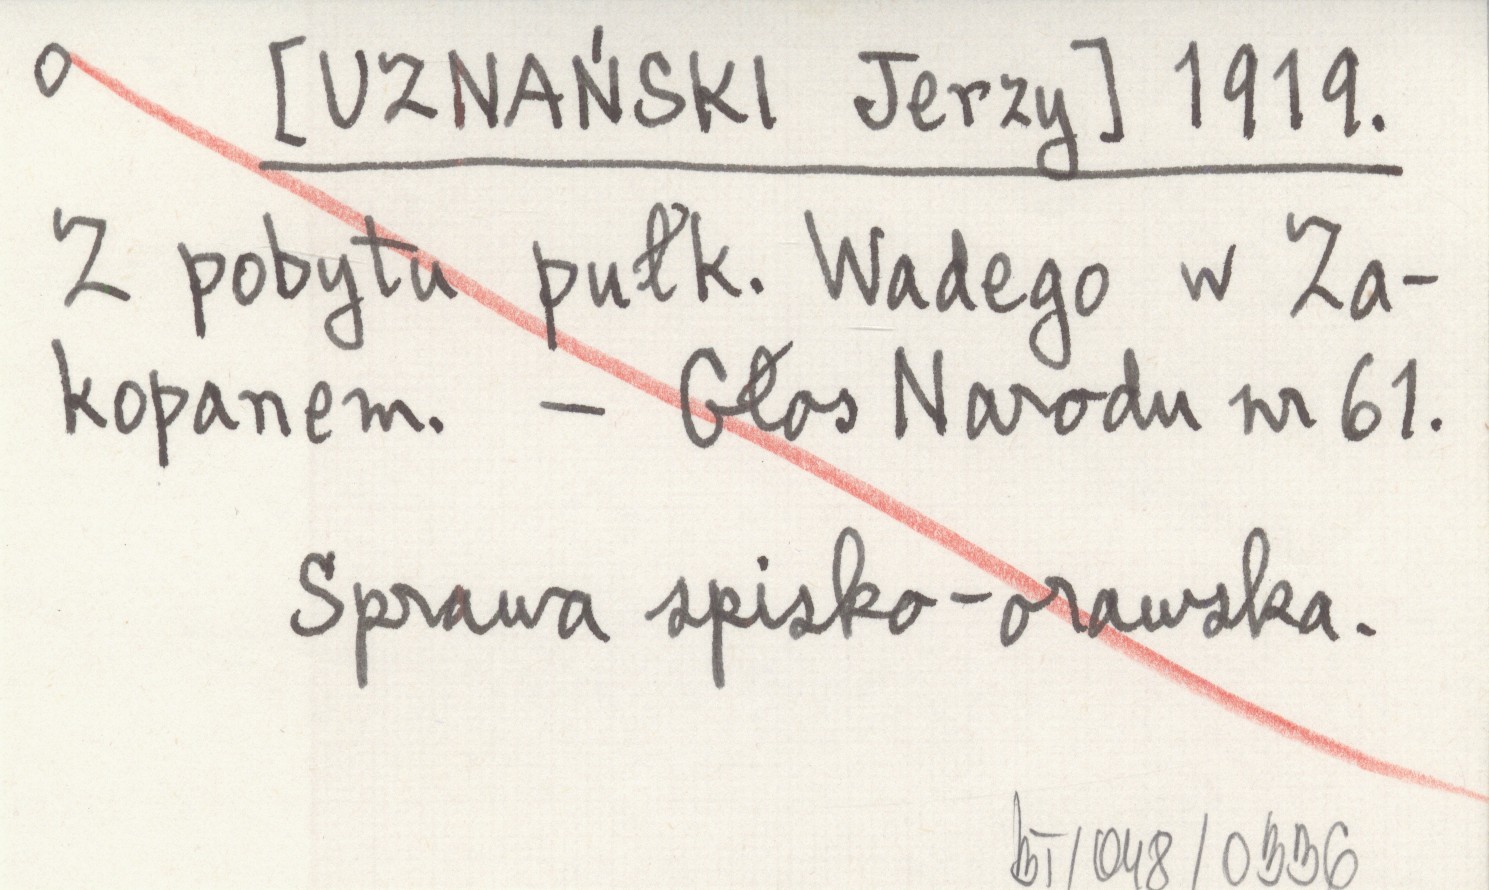 o [UZNAŃSKI Jerzy] 1919.
Z pobytu pułk. Wadego w Za-
kopanem. - Głos Narodu nr 61.
Sprawa spisko-orawska.
BT/048/0336